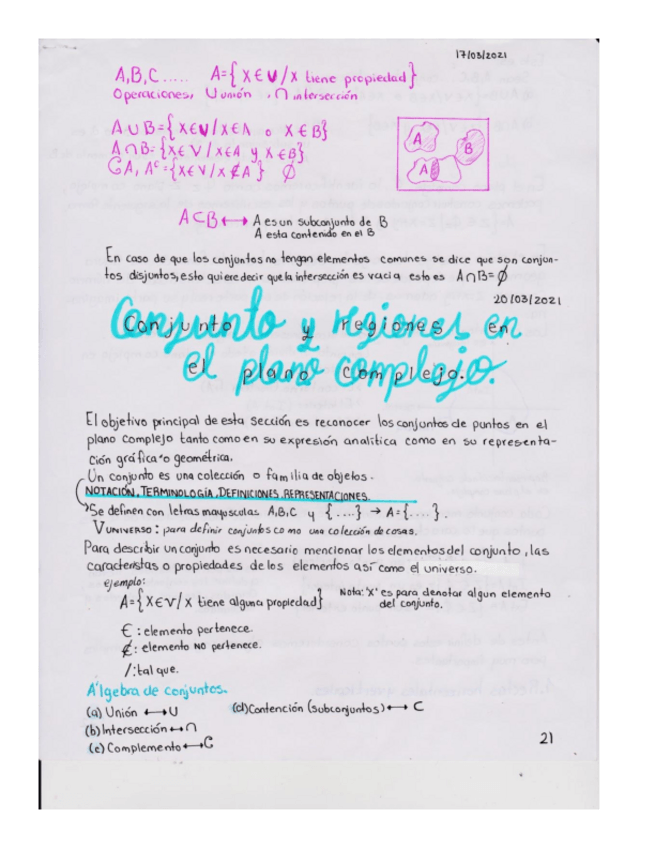 17/03/2021
A,B,C ..... A={ X ∈ U / X tiene propiedad}
Operaciones, U unión , ∩ intersección
A U B={ X∈U / X∈A o X∈B}
A ∩ B={X∈V / X∈A y X∈B}
CA, Aᶜ={X∈V / X∉A } ∅
A
B
A
A⊂B ⟷ A es un subconjunto de B
A esta contenido en el B
En caso de que los conjuntos no tengan elementos comunes se dice que son conjun-
tos disjuntos, esto quiere decir que la intersección es vacia esto es A∩B=∅
20/03/2021
Conjunto y regiones en
el plano complejo.
El objetivo principal de esta sección es reconocer los conjuntos de puntos en el
plano complejo tanto como en su expresión analítica como en su representa-
ción gráfica o geométrica.
Un conjunto es una colección o familia de objetos.
NOTACIÓN, TERMINOLOGIA, DEFINICIONES, REPRESENTACIONES.
Se definen con letras mayusculas A,B,C y {....} → A={....}.
V UNIVERSO: para definir conjuntos como una colección de cosas.
Para describir un conjunto es necesario mencionar los elementos del conjunto, las
caracteristas o propiedades de los elementos así como el universo.
ejemplo:
A={X∈V/X tiene alguna propiedad}
Nota: 'X' es para denotar algun elemento
del conjunto.
∈: elemento pertenece.
∉: elemento NO pertenece.
/: tal que.
Álgebra de conjuntos.
(a) Unión ⟷ U
(d) Contención (subconjuntos) ⟷ C
(b) Intersección ⟷ ∩
(c) Complemento ⟷ C
21